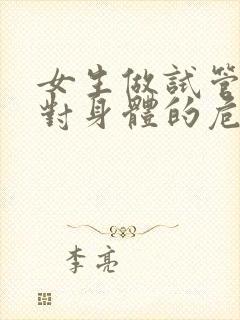 女生做試管
對身體的危
李亮